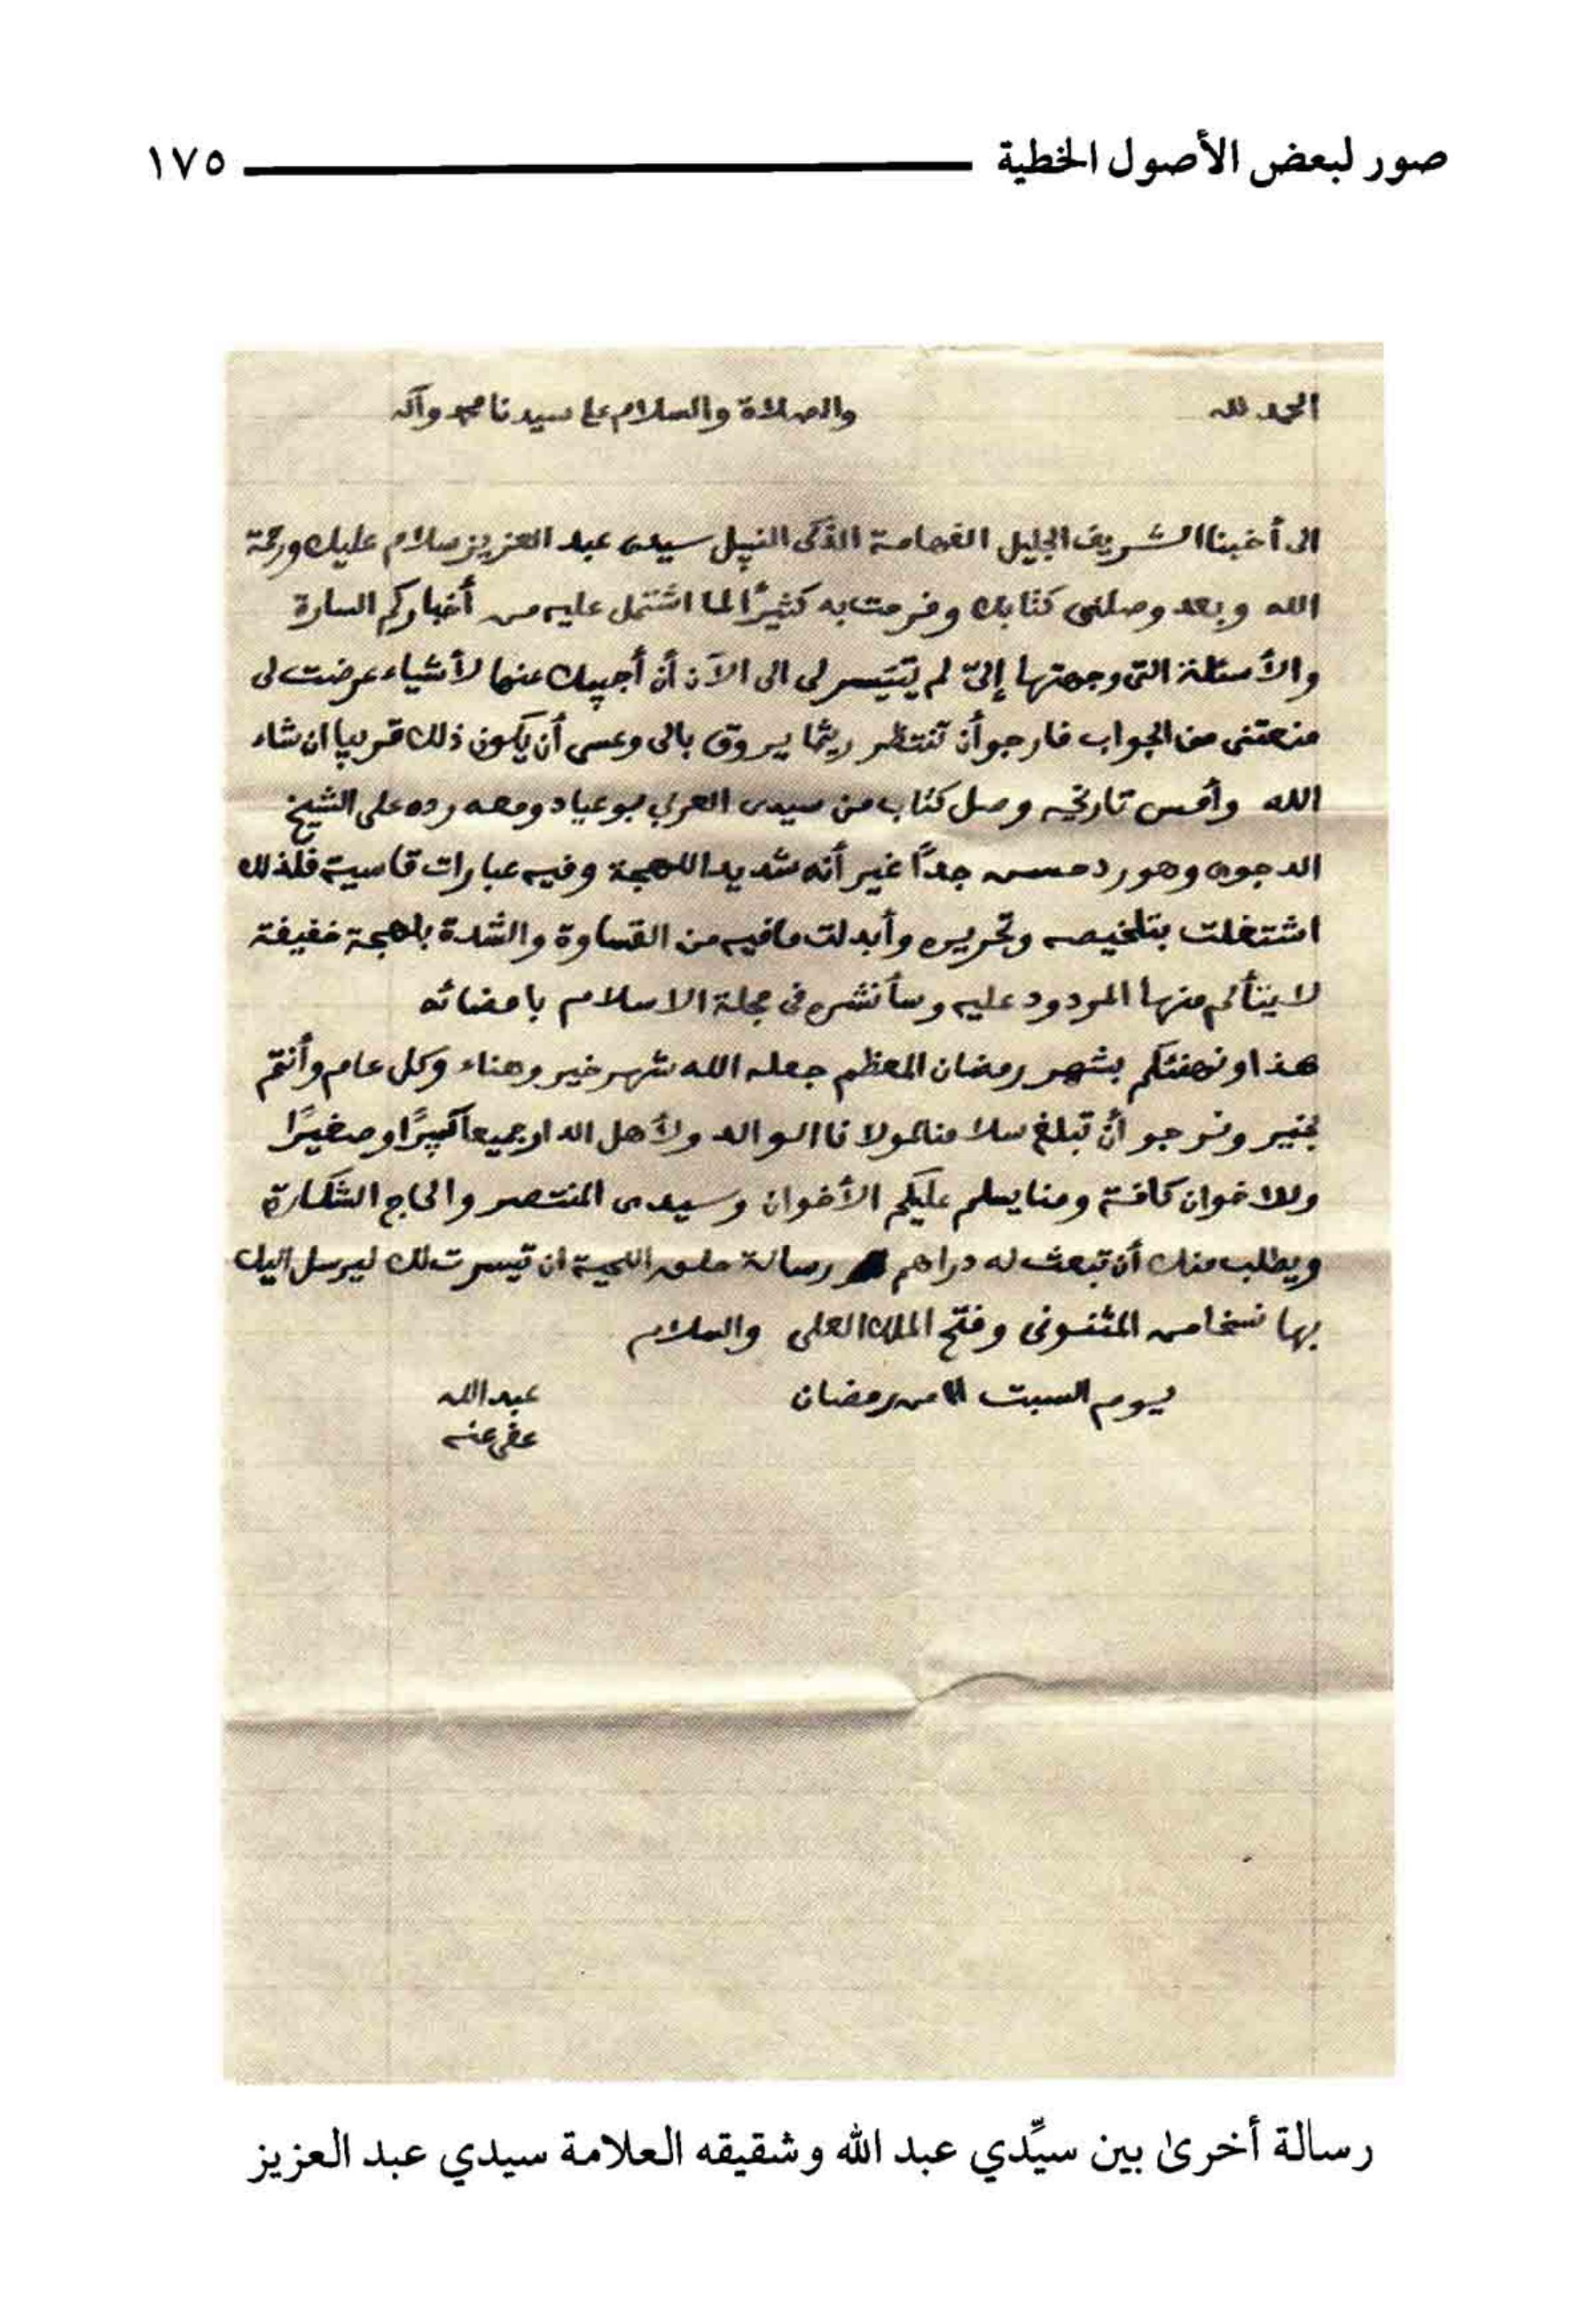 صور لبعض الأصول الخطية ١٧٥
الحمد لله والصلاة والسلام على سيدنا محمد وآله
الى أخينا الشريف الجليل الفهامة الذكى النبيل سيدى عبد العزيز سلام عليك ورحمة
الله وبعد وصلنى كتابك وفرحت به كثيرًا لما اشتمل عليه من أخباركم السارة
والأسئلة التى وجهتها إلىّ لم يتيسر لى الى الآن أن أجيبك عنها لأشياء عرضت لى
منعتنى من الجواب فارجو أن تنتظر ريثما يروق بالى وعسى أن يكون ذلك قريبا ان شاء
الله وأمس تاريخه وصل كتاب من سيدى العربي بوعياد ومعه رده على الشيخ
الدجوى وهو رد حسن جدًا غير أنه شديد اللهجة وفيه عبارات قاسية فلذلك
اشتغلت بتلخيصه وتحريره وأبدلت مافيه من القساوة والشدة بلهجة خفيفة
لا يتألم منها المردود عليه وسأنشره فى مجلة الاسلام بامضائه
هذا ونهنئكم بشهر رمضان المعظم جعله الله شهر خير وهناء وكل عام وأنتم
بخير ونرجو أن تبلغ سلامنا لمولانا الوالد ولأهل الدار جميعا كبيرًا وصغيرًا
وللاخوان كافة ومنا يسلم عليكم الأخوان وسيدى المنتصر والحاج الشكارة
ويطلب منك أن تبعث له دراهم رسالة حلق اللحية ان تيسرت لك ليرسل اليك
بها نسخا من المثنونى وفتح الملك العلى والسلام
يوم السبت من رمضان عبد الله
عفى عنه
رسالة أخرىٰ بين سيِّدي عبد الله وشقيقه العلامة سيدي عبد العزيز